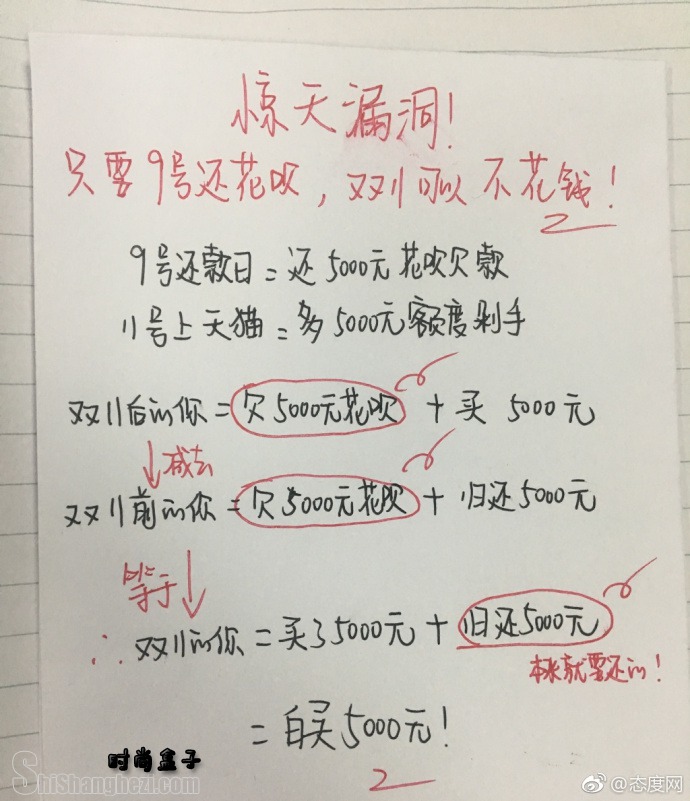 惊天漏洞!
只要9号还花呗,双11可以不花钱!
9号还款日=还5000元花呗欠款
11号上天猫=多5000元额度剁手
双11后的你=欠5000元花呗+买5000元
减去
双11前的你=欠5000元花呗+归还5000元
等于
∴双11的你=买了5000元+归还5000元
本来就要还的!
=白买5000元!
时尚盒子
ShiShanghezi.com
@态度网